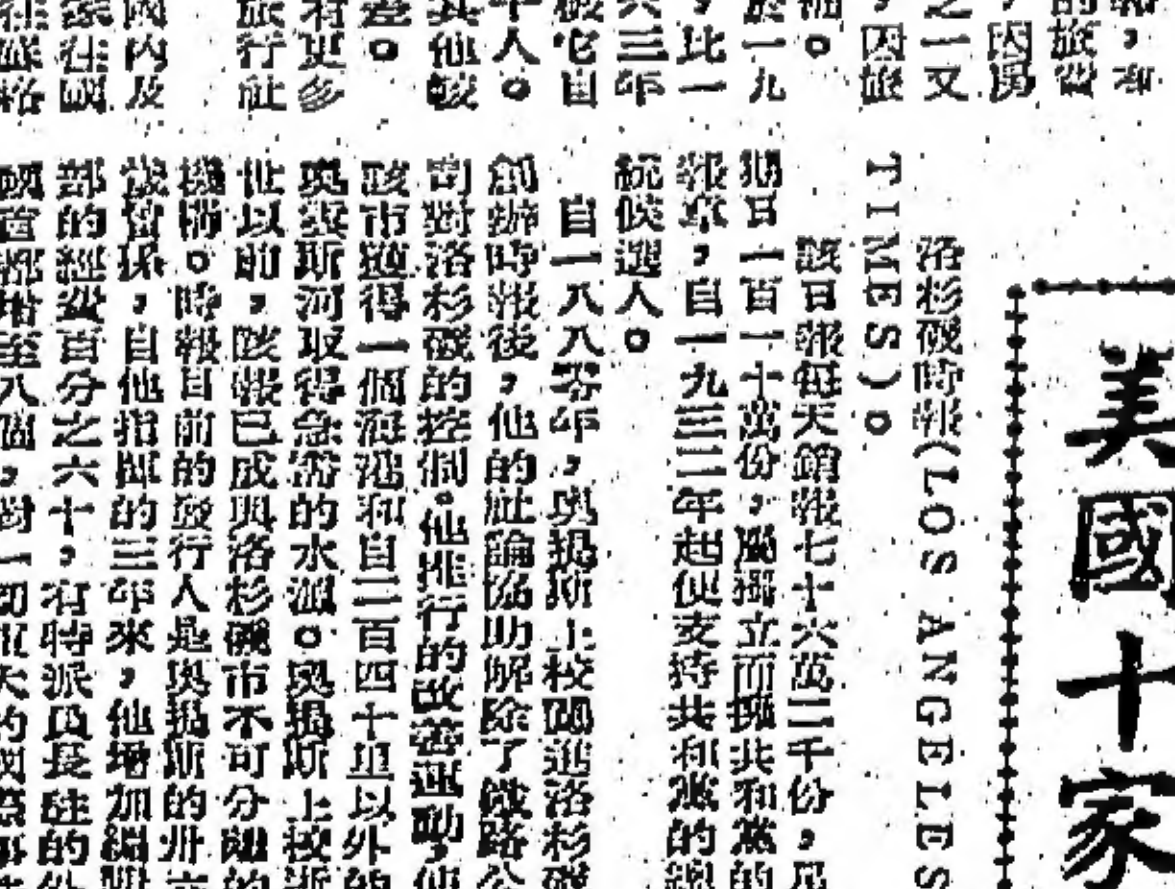 美國十家
洛杉磯時報(LOS ANGELES
TIMES)。
該日報每天銷報七十六萬二千份,星
期日一百一十萬份,屬獨立而擁共和黨的
報章,自一九三二年起便支持共和黨的總
統候選人。
自一八八零年,奧揚斯上校闖進洛杉磯
創辦時報後,他的社論協助解除了鐵路公
司對洛杉磯的控制。他推行的改善運動,使
該市獲得一個海港和自二百四十里以外的
奧雲斯河取得急需的水源。奧揚斯上校逝
世以前,該報已成與洛杉磯市不可分離的
機構。時報目前的發行人是奧揚斯的卅六
歲曾孫,自他指揮的三年來,他增加編輯
部的經費百分之六十,有特派員長駐的外
國首都增至八個,對一切重大的國際事
和,有
的旅費
,因男
之一又
,因旅
於一九
,比一
六三年
破它自
十人。
其他發
差。
有更多
旅行社
國內及